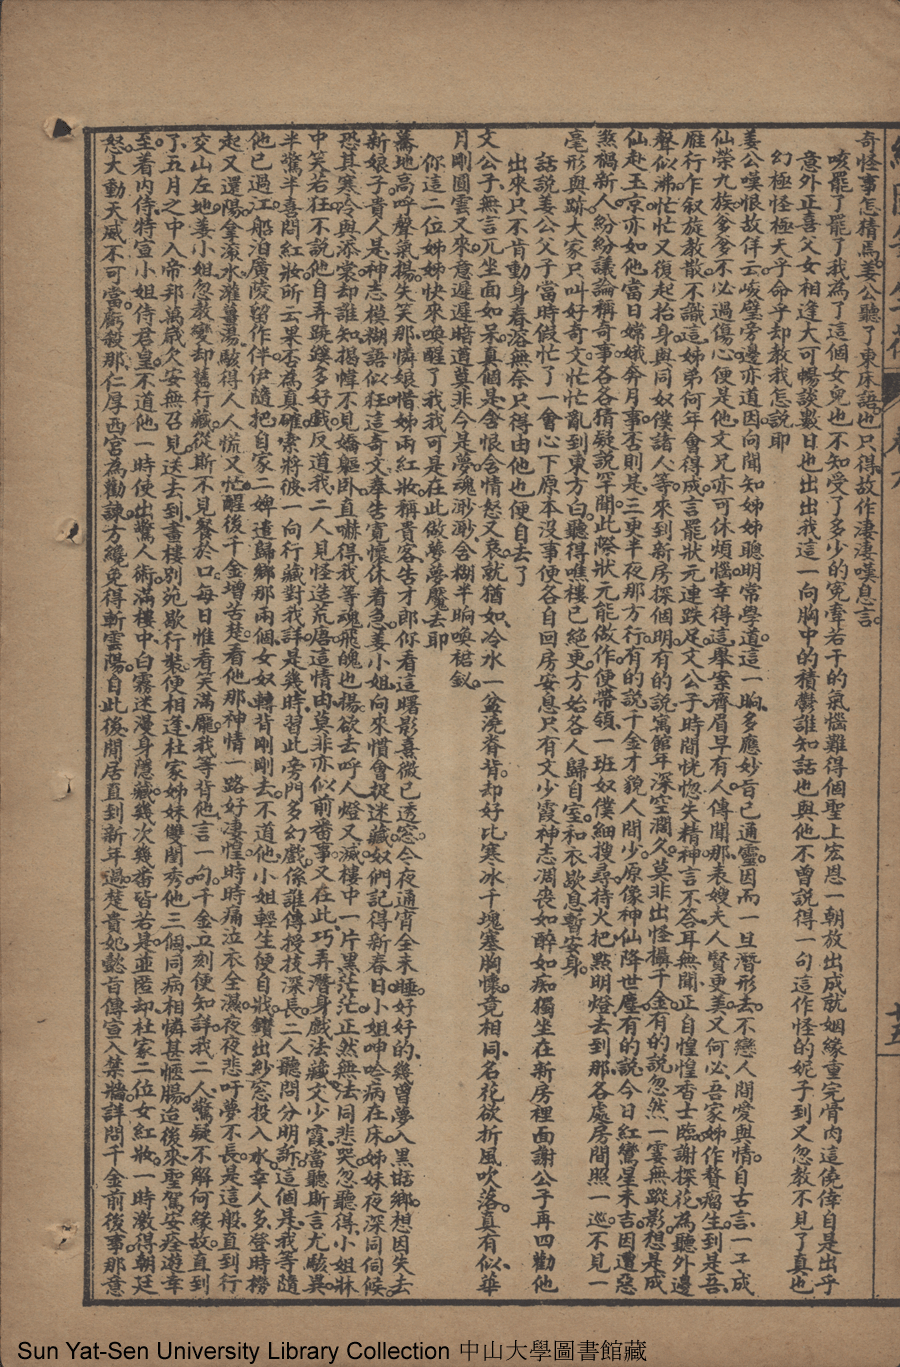 奇怪事怎猜焉姜公聽了東床語也只得故作淒淒嘆息言
咳罷了罷了我為了這個女兒也不知受了多少的冤牽若干的氣惱難得個聖上宏恩一朝放出成就姻緣重完骨肉這僥倖自是出乎
意外正喜父女相逢大可暢談數日也出出我這一向胸中的積鬱誰知話也與他不曾說得一句這作怪的妮子到又忽教不見了真也
幻極怪極天乎命乎却教我怎說耶
姜公嘆恨故佯云峻壁旁邊亦道因向聞知姊姊聰明常學道這一晌多應妙旨已通靈因而一旦潛形去不戀人間愛與情自古言一子成
仙榮九族爹爹不必過傷心便是他文兄亦可休煩惱幸得這舉案齊眉早有人傳聞那表嫂夫人賢更美又何必吾家姊作贅瘤生到是吾
雁行乍叙旋教散不識這姊弟何年會得成言罷狀元連跌足文公子時間恍惚失精神言不答耳無聞正自惶惶香士臨謝探花為聽外邊
聲似沸忙忙又復起抬身與同奴僕諸人等來到新房探個明有的說寓館年深空濶久莫非出怪攝千金有的說忽然一雲無蹤影想是成
仙赴玉京亦如他當日嫦娥奔月事否則是三更半夜那方行有的說千金才貌人間少原像神仙降世塵有的說今日紅鸞星未吉因遭惡
煞禍新人紛紛議論稱奇事各各猜疑說罕聞此際狀元能做作便帶領一班奴僕細搜尋持火把點明燈去到那各處房間照一巡不見一
毫形與跡大家只叫好奇文忙忙亂到東方白聽得譙樓已絕更方始各人歸自室和衣歇息暫安身
話說姜公父子當時假忙了一會心下原本沒事便各自回房安息只有文少霞神志凋喪如醉如痴獨坐在新房裡面謝公子再四勸他
出來只不肯動身春溶無奈只得由他也便自去了
文公子無言兀坐面如呆真個是含恨含情怒又哀就猶如冷水一盆澆脊背却好比寒冰千塊塞胸懷竟相同名花欲折風吹落真有似華
月剛圓雲又來意遲遲暗道莫非今是夢魂渺渺含糊半晌喚裙釵
你這二位姊姊快來喚醒了我我可是在此做夢夢魘去耶
驀地高呼聲氣揚失笑那憐娘惜姊兩紅妝稱貴客告才郎你看這曙影熹微已透窓今夜通宵全未睡好好的幾曾夢入黑甜鄉想因失去
新娘子貴人是神志模糊語似狂這奇文奉告寬懷休着急姜小姐向來慣會捉迷藏奴們記得新春日小姐呻吟病在床姊妹夜深同伺候
恐其寒冷與添裳却誰知揭幃不見嬌軀卧直嚇得我等魂飛魄也揚欲去呼人燈又滅樓中一片黑茫茫正然無法同悲哭忽聽得小姐牀
中笑若狂不說他自弄蹺蹊多好戲反道我二人見怪造荒唐這情由莫非亦似前番事又在此巧弄潛身戲法藏文少霞當聽斯言尤駭異
半驚半喜問紅妝所云果否為真確索將彼一向行藏對我詳是幾時習此旁門多幻戲係誰傳授技深長二人聽問分明訴這個是我等隨
他已過江船泊廣陵留作伴伊隨把自家二婢遣歸鄉那兩個女奴轉背剛剛去不道他小姐輕生便自戕鑽出紗窓投入水幸人多登時撈
起又還陽登滾水灌薑湯駭得人人慌又忙醒後千金增苦楚看他那神情一路好凄惶時時痛泣衣全濕夜夜悲吁夢不長是這般直到行
交山左地姜小姐忽教變却舊行藏從斯不見餐於口每日惟看笑滿龐我等背他言一句千金立刻便知詳我二人驚疑不解何緣故直到
了五月之中入帝邦萬歲欠安無召見送去到畫樓別苑歇行裝便相逢杜家姊妹雙閨秀他三個同病相憐甚愜腸迨後來聖駕安痊遊幸
至着內侍特宣小姐侍君皇不道他一時使出驚人術滿樓中白霧迷漫身隱藏幾次幾番皆若是並匿却杜家二位女紅妝一時激得朝廷
怒大動天威不可當虧殺那仁厚西宮為勸諫方纔免得斬雲陽自此後閒居直到新年過楚貴妃懿旨傳宣入禁牆詳問千金前後事那意
Sun Yat-Sen University Library Collection 中山大學圖書館藏